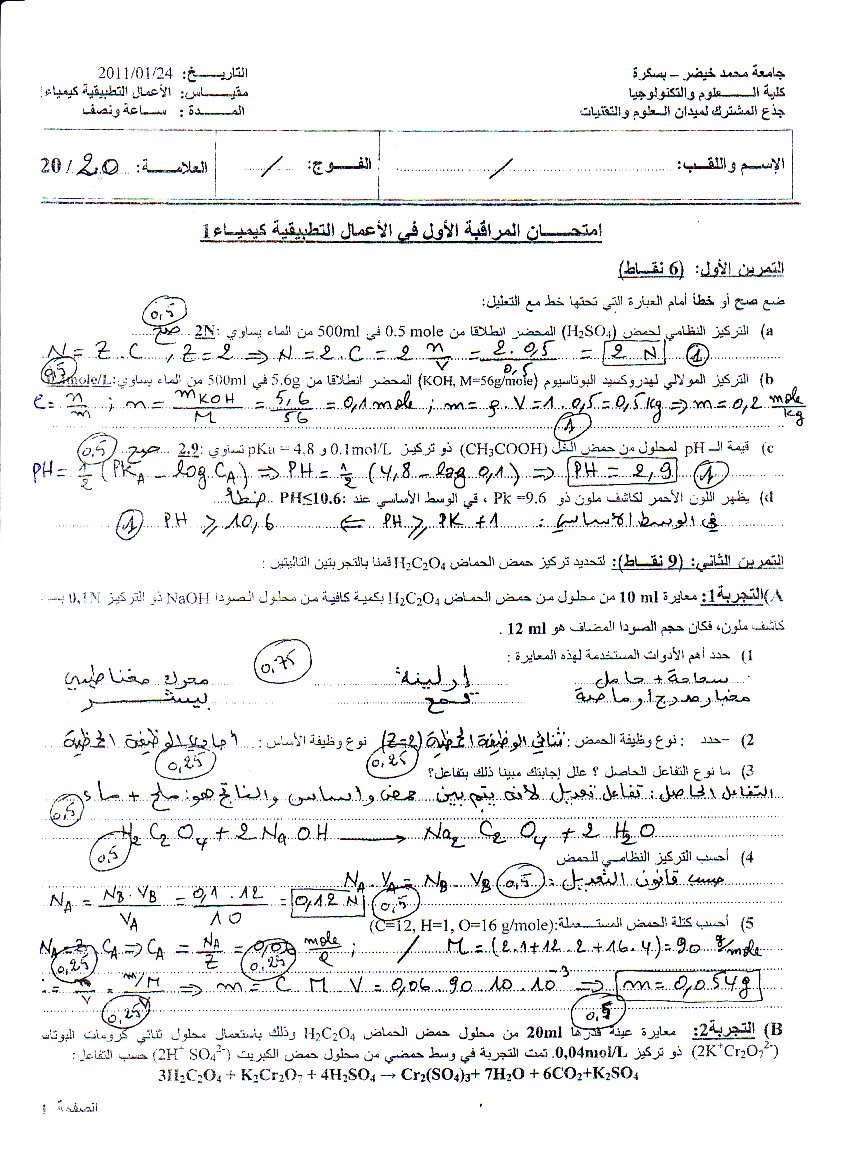 جامعة محمد خيضر – بسكرة
التاريـــخ: 2011/01/24
كلية العـــلوم والتكنولوجيا
مقيـاس: الأعمال التطبيقية كيمياء1
جذع المشترك لميدان العلوم والتقنيات
المـــدة : ســاعة ونصف
الإسم واللقب: /
الفــوج: /
العلامــة: 20 / 20
امتحـــان المراقبة الأول في الأعمال التطبيقية كيميــاء1
التمرين الأول: (6 نقــاط)
ضع صح أو خطأ أمام العبارة التي تحتها خط مع التعليل:
0,5
a) التركيز النظامي لحمض (H2SO4) المحضر انطلاقا من 0.5 mole في 500ml من الماء يساوي :2N صح
N = Z . C , Z = 2 ⇒ N = 2 . C = 2 n/V = 2 . 0,5 / 0,5 = 2 N 1
0,5
b) التركيز المولالي لهدروكسيد البوتاسيوم (KOH, M=56g/mole) المحضر انطلاقا من 5.6g في 500ml من الماء يساوي: mole/L
= n/m ; n = mKOH/M = 5,6/56 = 0,1 mole ; m = ρ . V = 1 . 0,5 = 0,5 kg ⇒ m = 0,2 mole/kg
1
c) قيمة الـ pH لمحلول من حمض الخل (CH3COOH) ذو تركيز 0.1mol/L و pKa = 4.8 تساوي :2.9 صح 0,5
PH = 1/2 (PKA – log CA) ⇒ PH = 1/2 (4,8 – log 0,1) ⇒ PH = 2,9 1
d) يظهر اللون الأحمر لكاشف ملون ذو Pk =9.6 ، في الوسط الأساسي عند :PH≤10.6 خطأ
في الوسط الاساسي : PH ≥ PK + 1 ⇐ PH ≥ 10,6 1
التمرين الثاني: (9 نقــاط): لتحديد تركيز حمض الحماض H2C2O4 قمنا بالتجربتين التاليتين :
A)التجربة1: معايرة 10 ml من محلول من حمض الحماض H2C2O4 بكمية كافية من محلول الصودا NaOH ذو التركيز 0,1N
كاشف ملون، فكان حجم الصودا المضاف هو 12 ml .
1) حدد أهم الأدوات المستخدمة لهذه المعايرة :
0,75
سحاحة + حامل إرلينة محرك مغناطيسي
مخبار مدرج أو ماصة قمع بيشر
2) –حدد : نوع وظيفة الحمض : ثنائي الوظيفة الحمضية (Z=2) نوع وظيفة الأساس : أحادي الوظيفة
0,25 0,25
3) ما نوع التفاعل الحاصل ؟ علل إجابتك مبينا ذلك بتفاعل؟
التفاعل الحاصل : تفاعل تعديل لأنه يتم بين حمض واساس والناتج هو: ملح + ماء
0,5
H2C2O4 + 2 NaOH → Na2C2O4 + 2 H2O
0,5
4) أحسب التركيز النظامي للحمض
حسب قانون التعديل : NA . VA = NB . VB 0,5
NA = NB . VB / VA = 0,1 . 12 / 10 = 0,12 N 0,5
5) أحسب كتلة الحمض المستـعملة:(C=12, H=1, O=16 g/mole)
NA = Z CA ⇒ CA = NA/Z = 0,06 mole/l ; / M = (2.1+12.2+16.4) = 90 g/mole
0,25 0,25
= n/V = m/M / V ⇒ m = C M V = 0,06 . 90 . 10 . 10⁻³ ⇒ m = 0,054g
0,25 0,5
B) التجربة2: معايرة عينة قدرها 20ml من محلول حمض الحماض H2C2O4 وذلك باستعمال محلول ثنائي كرومات البوتاس
(2K⁺Cr2O7²⁻) ذو تركيز 0,04mol/L. تمت التجربة في وسط حمضي من محلول حمض الكبريت (2H⁺ SO4²⁻) حسب التفاعل:
3H2C2O4 + K2Cr2O7 + 4H2SO4 → Cr2(SO4)3+ 7H2O + 6CO2+K2SO4
الصفحة 1